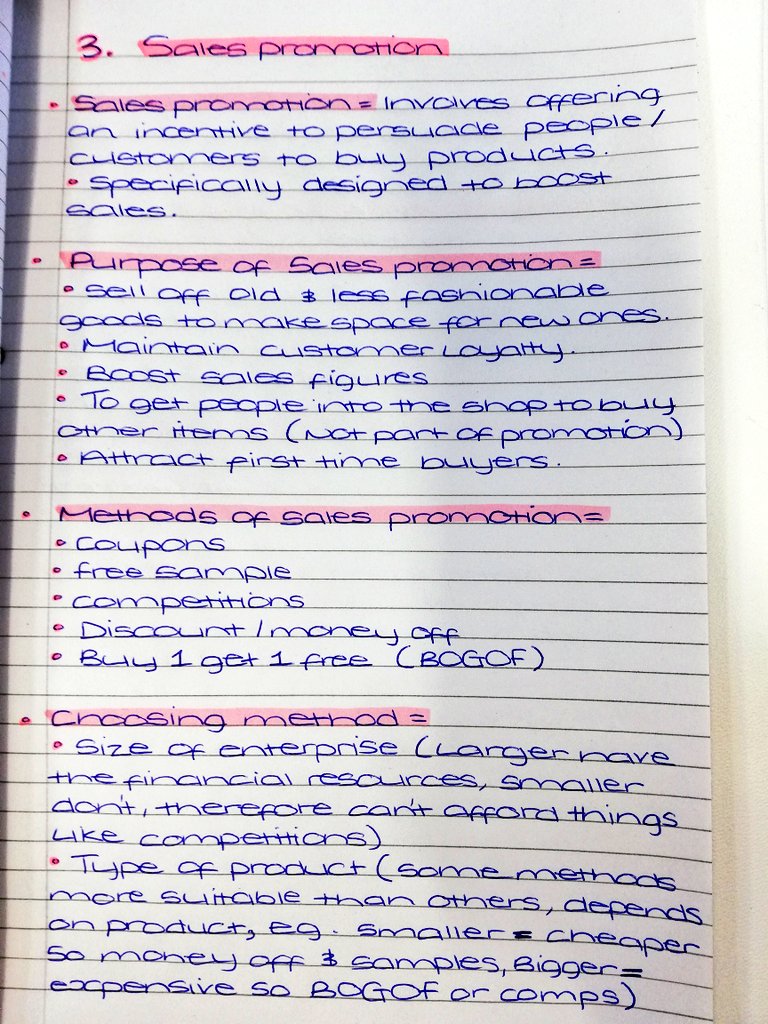 3. Sales promotion
• Sales promotion = Involves offering
an incentive to persuade people/
customers to buy products.
• Specifically designed to boost
sales.
• Purpose of Sales promotion =
• Sell off old & less fashionable
goods to make space for new ones.
• Maintain customer Loyalty.
• Boost sales figures
• To get people into the shop to buy
other items (Not part of promotion)
• Attract first time buyers.
• Methods of sales promotion =
• coupons
• free sample
• competitions
• Discount/money off
• Buy 1 get 1 free (BOGOF)
• Choosing method =
• Size of enterprise (Larger have
the financial resources, smaller
don't, therefore can't afford things
like competitions)
• Type of product (some methods
more suitable than others, depends
on product, eg. smaller = cheaper
so money off & samples, Bigger =
expensive so BOGOF or comps)